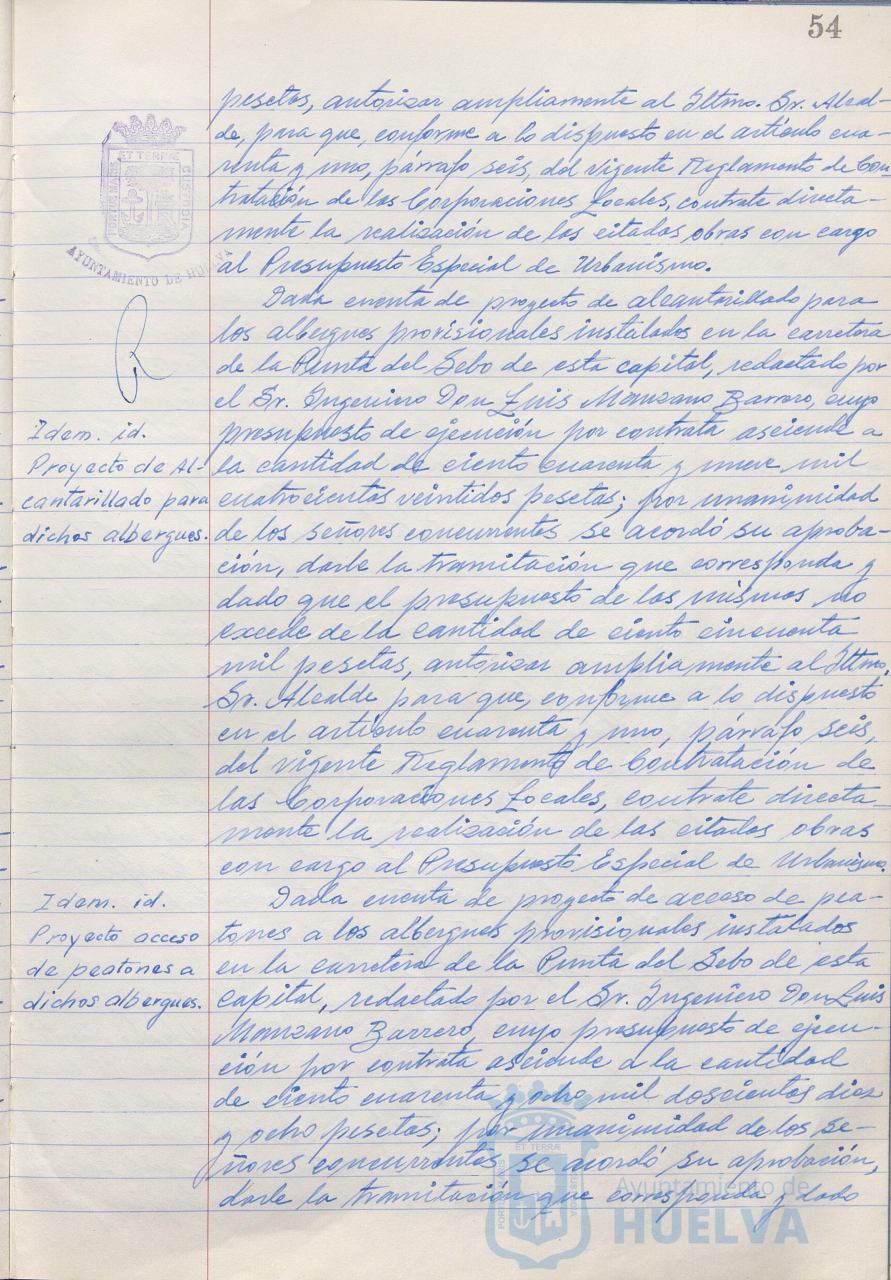 54
pesetas, autorizar ampliamente al Iltmo. Sr. Alcal-
de, para que, conforme a lo dispuesto en el artículo cua-
renta y uno, párrafo seis, del vigente Reglamento de Con-
tratación de las Corporaciones Locales, contrate directa-
mente la realización de las citadas obras con cargo
al Presupuesto Especial de Urbanismo.
ET TERRÆ
PORTUS MARIS
CUSTODIA
AYUNTAMIENTO DE HUELVA
Dada cuenta de proyecto de alcantarillado para
los albergues provisionales instalados en la carretera
de la Punta del Sebo de esta capital, redactado por
el Sr. Ingeniero Don Luis Manzano Barrero, cuyo
presupuesto de ejecución por contrata asciende a
la cantidad de ciento cuarenta y nueve mil
cuatrocientas veintidos pesetas; por unanimidad
de los señores concurrentes se acordó su aproba-
ción, darle la tramitación que corresponda y
dado que el presupuesto de las mismas no
excede de la cantidad de ciento cincuenta
mil pesetas, autorizar ampliamente al Iltmo.
Sr. Alcalde para que, conforme a lo dispuesto
en el artículo cuarenta y uno, párrafo seis,
del vigente Reglamento de Contratación de
las Corporaciones Locales, contrate directa-
mente la realización de las citadas obras
con cargo al Presupuesto Especial de Urbanismo.
Idem. id.
Proyecto de Al-
cantarillado para
dichos albergues.
Dada cuenta de proyecto de acceso de pea-
tones a los albergues provisionales instalados
en la carretera de la Punta del Sebo de esta
capital, redactado por el Sr. Ingeniero Don Luis
Manzano Barrero, cuyo presupuesto de ejecu-
ción por contrata asciende a la cantidad
de ciento cuarenta y ocho mil doscientas diez
y ocho pesetas; por unanimidad de los se-
ñores concurrentes se acordó su aprobación,
darle la tramitación que corresponda y dado
Idem. id.
Proyecto acceso
de peatones a
dichos albergues.
ET TERRÆ
PORTUS MARIS
CUSTODIA
Ayuntamiento de
HUELVA